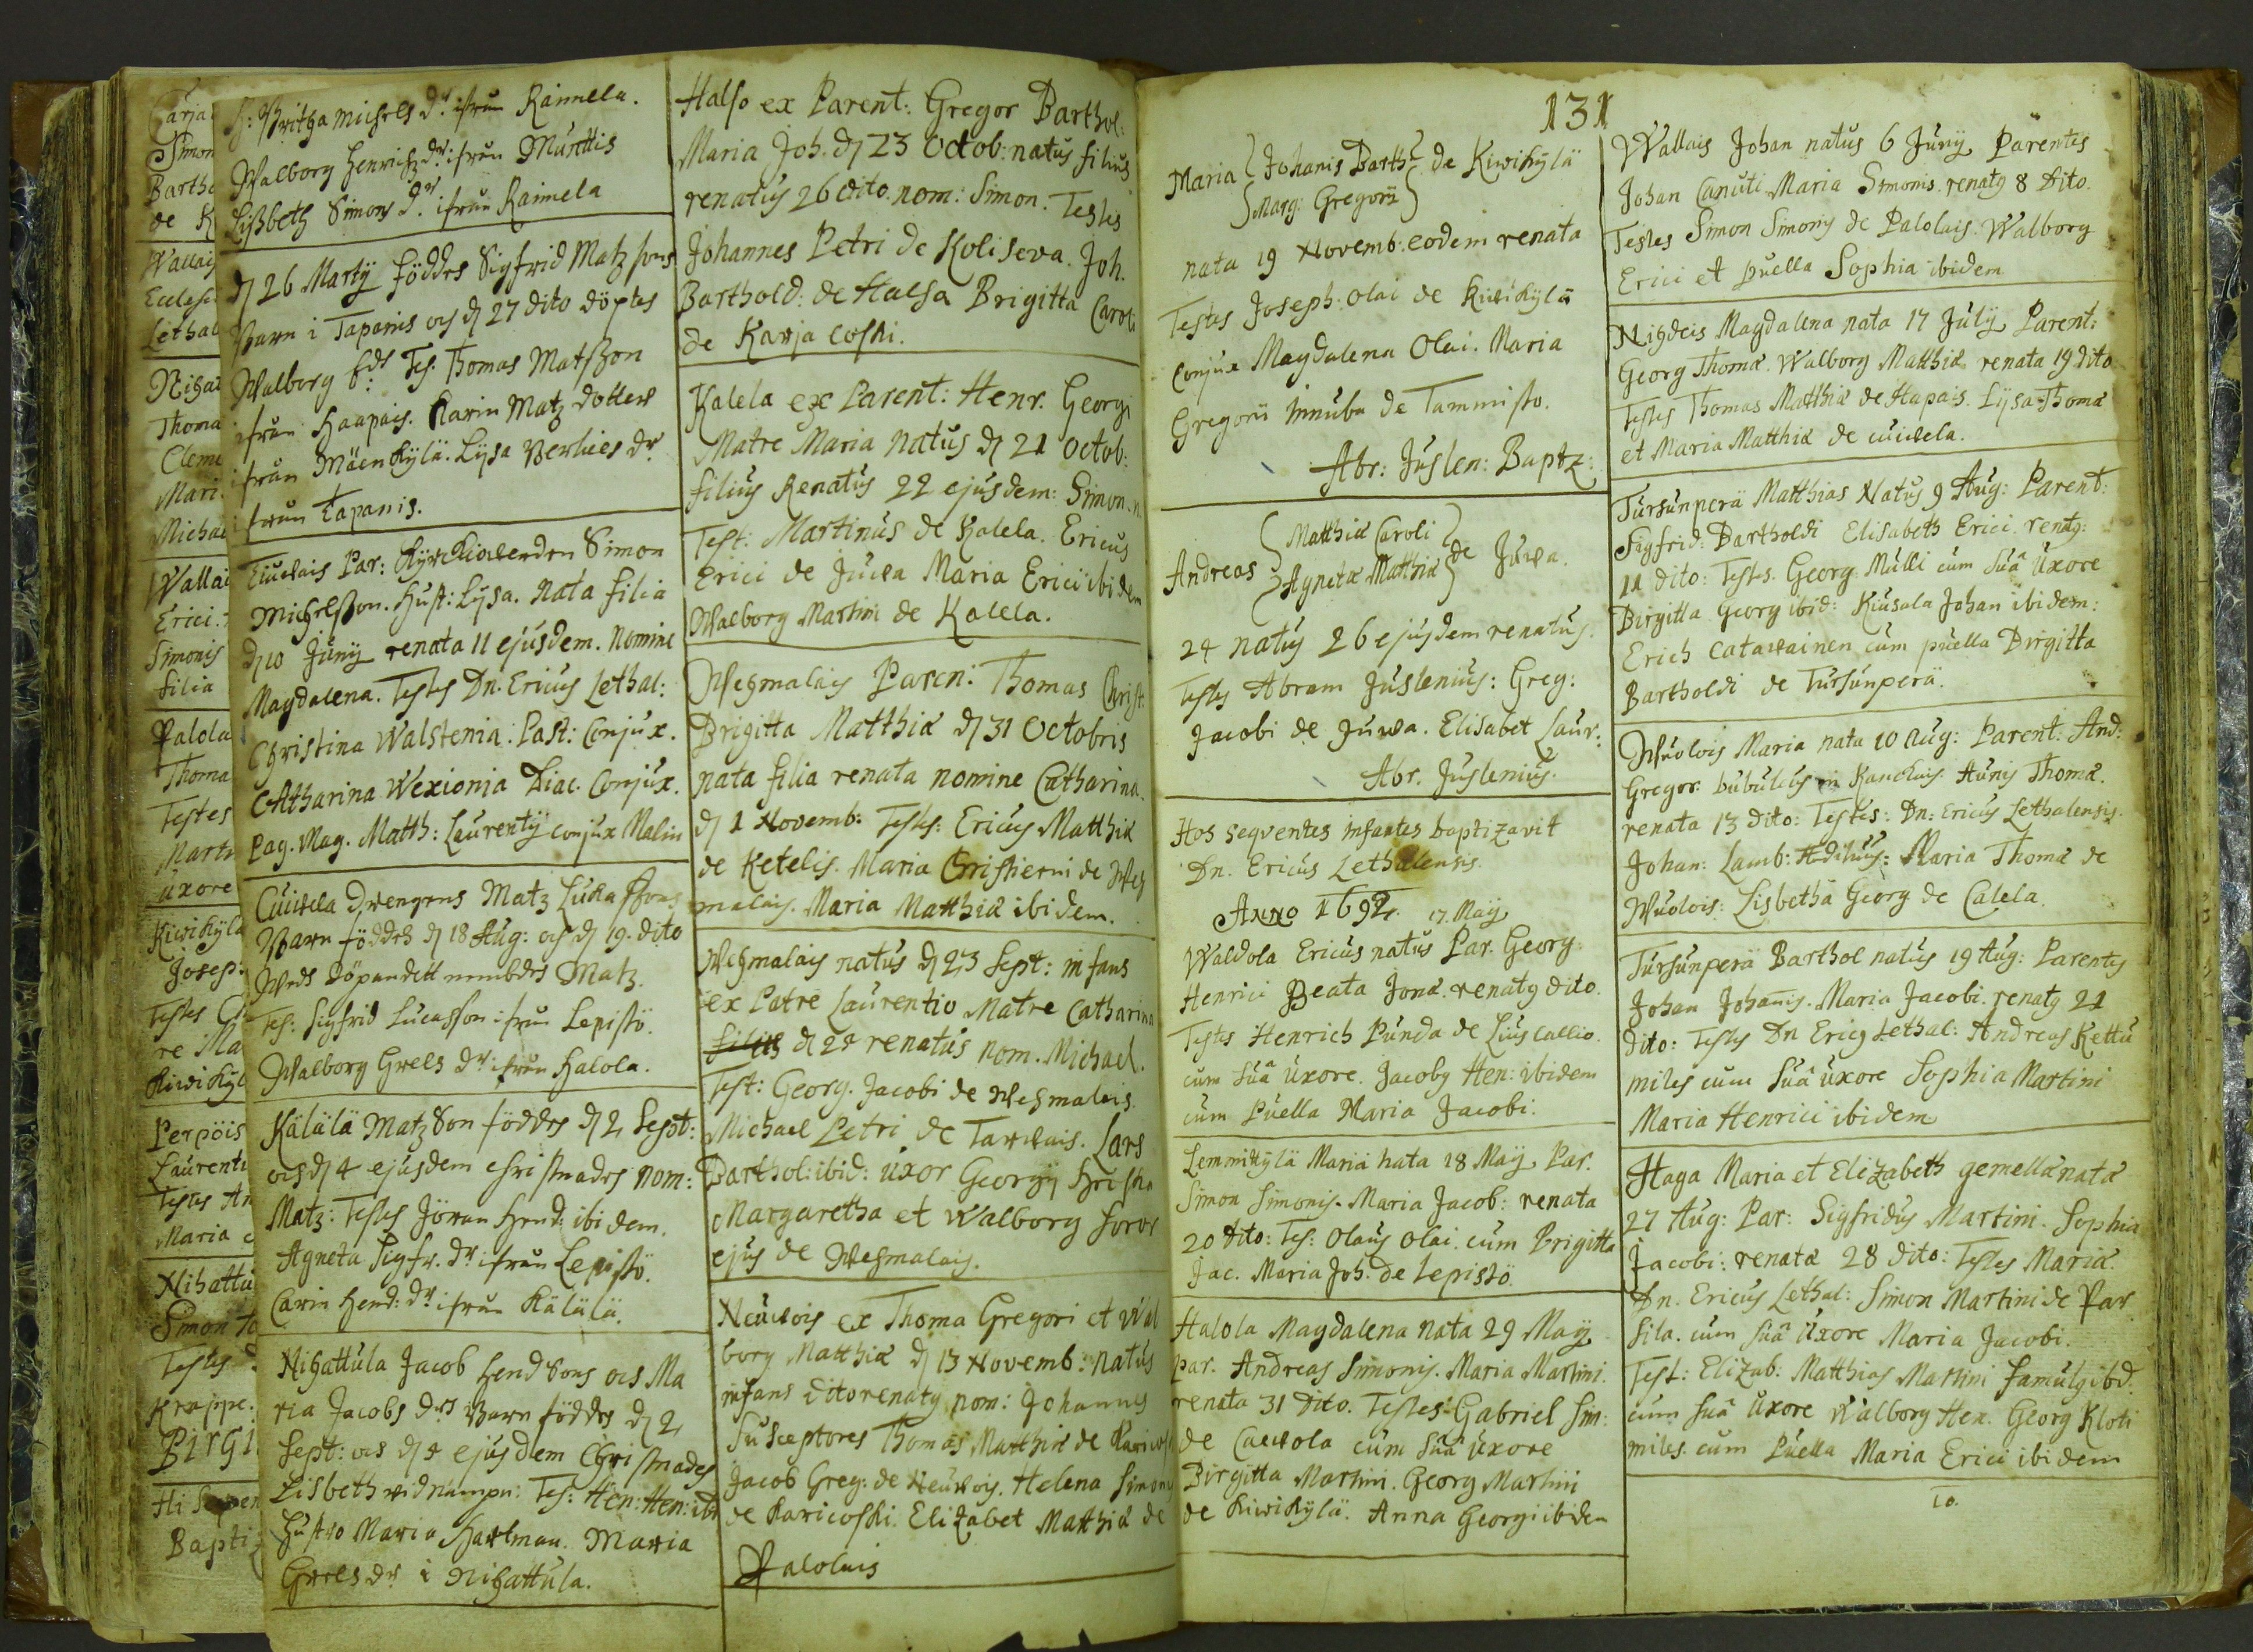 H: Britha Michels dr. ifrån Raimela.
Walborg Henrichz dr. ifrån Murttis
Lissbeth Simons dr. ifrån Raimela
d 26 Martij föddes Sigfrid Matzsons
Barn i Tapanis och d 27 dito döptes
Walborg Tes: Thomas Matsson
ifrån Haapais. Karin Matz dotter
ifrån Mäenkylä. Lysa dr.
ifrån Tapanis.
Par: Simon
Michelsson. Hust: Lysa. Nata filia
d 10 Junij renata 11 ejusdem. Nomine
Magdalena. Testes Dn. Ericus Lethal:
Christina Walstenia: Past: Conjux.
Catharina Wexionia Diac. Conjux.
Pag. Mag. Matth: Laurentij conjux Malin
Cuivela drengens Matz Lucassons
Barn föddes d 18 Aug: och d 19. dito
Matz.
Tes: Sigfrid Lucasson ifrån Lepistö.
Walborg Grels dr. ifrån Halola.
Kälälä Matz Son föddes d 2 Sept:
och d 4 ejusdem Christnades nom:
Matz: Testes Jöran Hend: ibidem.
Agneta Sigfr. dr. ifrån Lepistö.
Carin Hend: dr. ifrån Kälälä.
Nihattula Jacob Hendsons och Ma
ria Jacobs drs Barn föddes d 2
Sept: och d 4 ejusdem Christnades
Lisbeth vid nampn: Tes: Hen: Hen: ibd
Hustro Maria Hartman. Maria
Grels dr. i Nihattula.
Halso ex Parent: Gregor Barthol:
Maria Joh. d 23 Octob: natus filius
renatus 26 dito. nom: Simon. Testes
Johannes Petri de Koliseva. Joh.
Barthold: de Halsa Brigitta Caroli
de Karja coski.
Kalela ex Parent: Henr. Georgi
Matre Maria natus d 21 Octob:
filius Renatus 22 ejusdem: Simon. n.
Test: Martinus de Kalela. Ericus
Erici de Juva Maria Erici ibidem
Walborg Martini de Kalela.
Wehmalais Paren: Thomas Christ.
Brigitta Matthiæ d 31 Octobris
nata filia renata nomine Catharina.
d 1 Novemb: Testes: Ericus Matthiæ
de Ketelis. Maria Christierni de Weh
malais. Maria Matthiæ ibidem.
Wehmalais natus d 23 Sept: infans
ex Patre Laurentio Matre Catharina
filius d 24 renatus nom. Michael.
Test: Georg. Jacobi de Wehmalais.
Michael Petri de Tarvais. Lars
Barthol: ibid: uxor Georgij
Margaretha et Walborg soror
ejus de Wehmalais.
Neuvois ex Thoma Gregori et Wal
borg Matthiæ d 13 Novemb: natus
infans dito renatus nom: Johannes
Susceptores Thomas Matthiæ de
Jacob Greg: de Neuvois. Helena Simonis
de Karicoski. Elizabet Matthiæ de
Palolais
131
Maria Johanis Barth: de Kiwikylä
Marg: Gregorii
nata 19 Novemb: eodem renata
Testes Joseph: Olai de Kiwikylä
Conjux Magdalena Olai. Maria
Gregorii innuba de Tammisto.
Abr: Juslen: Baptz:
Andreas Matthiæ Caroli de Juva.
Agnetæ Matthiæ
24 natus 26 ejusdem renatus.
Testes Abram Juslenius: Greg:
Jacobi de Juwa. Elisabet Laur:
Abr. Juslenius.
Hos seqventes infantes baptizavit
Dn. Ericus Lethalensis.
Anno 1692. 17. Maij
Waldola Ericus natus Par. Georg:
Henrici Beata Jonæ. renatus dito.
Testes Henrich Punda de Liuscallio.
cum suâ uxore. Jacobus Hen: ibidem
cum Puella Maria Jacobi.
Lemmikylä Maria nata 18 Maij Par.
Simon Simonis. Maria Jacob: renata
20 dito: Tes: Olaus Olai cum Brigitta
Jac. Maria Joh. de Lepistö
Halola Magdalena nata 29 Maij
par. Andreas Simonis. Maria Martini.
renata 31 dito. Testes Gabriel Sim:
de Caevola cum suâ uxore
Birgitta Martini. Georg Martini
de Kiwikylä. Anna Georgi ibidem
Wallais Johan natus 6 Junij Parentes
Johan Canuti Maria Simonis. renatus 8 dito.
Testes Simon Simonis de Palolais. Walborg
Erici et puella Sophia ibidem
Nigdeis Magdalena nata 17 Julij Parent:
Georg Thomæ. Walborg Matthiæ renata 19 dito
Testes Thomas Matthiæ de Hapais. Lysa Thomæ
et Maria Matthiæ de cuivela.
Tursunperä Matthias Natus 9 Aug: Parent:
Sigfrid: Bartholdi Elisabeth Erici renatus:
11 dito: Testes. Georg Mulli cum suâ uxore
Birgitta Georg ibid: Kiusala Johan ibidem:
Erich Catavainen cum puella Birgitta
Bartholdi de Tursunperä.
Wuolois Maria nata 10 Aug: Parent: And:
Gregor. bubulcus in Aunis Thomæ.
renata 13 dito: Testes: Dn: Ericus Lethalensis.
Johan: Lamb: Ædituus: Maria Thomæ de
Wuolois: Lisbetha Georg de Calela.
Tursunperä Barthol natus 19 Aug: Parentes
Johan Johanis. Maria Jacobi. renatus 21
dito: Testes Dn Ericus Lethal: Andreas Kettu
miles cum suâ uxore Sophia Martini
Maria Henrici ibidem
Haga Maria et Elizabeth gemellæ natæ
27 Aug: Par: Sigfridus Martini. Sophia
Jacobi: renatæ 28 dito: Testes Mariæ.
Dn. Ericus Lethal: Simon Martini de Par
sila. cum suâ Uxore Maria Jacobi.
Test: Elizab: Matthias Martini famulus ibd.
cum suâ Uxore Walborg Hen. Georg Kloti
miles. cum Puella Maria Erici ibidem
10.